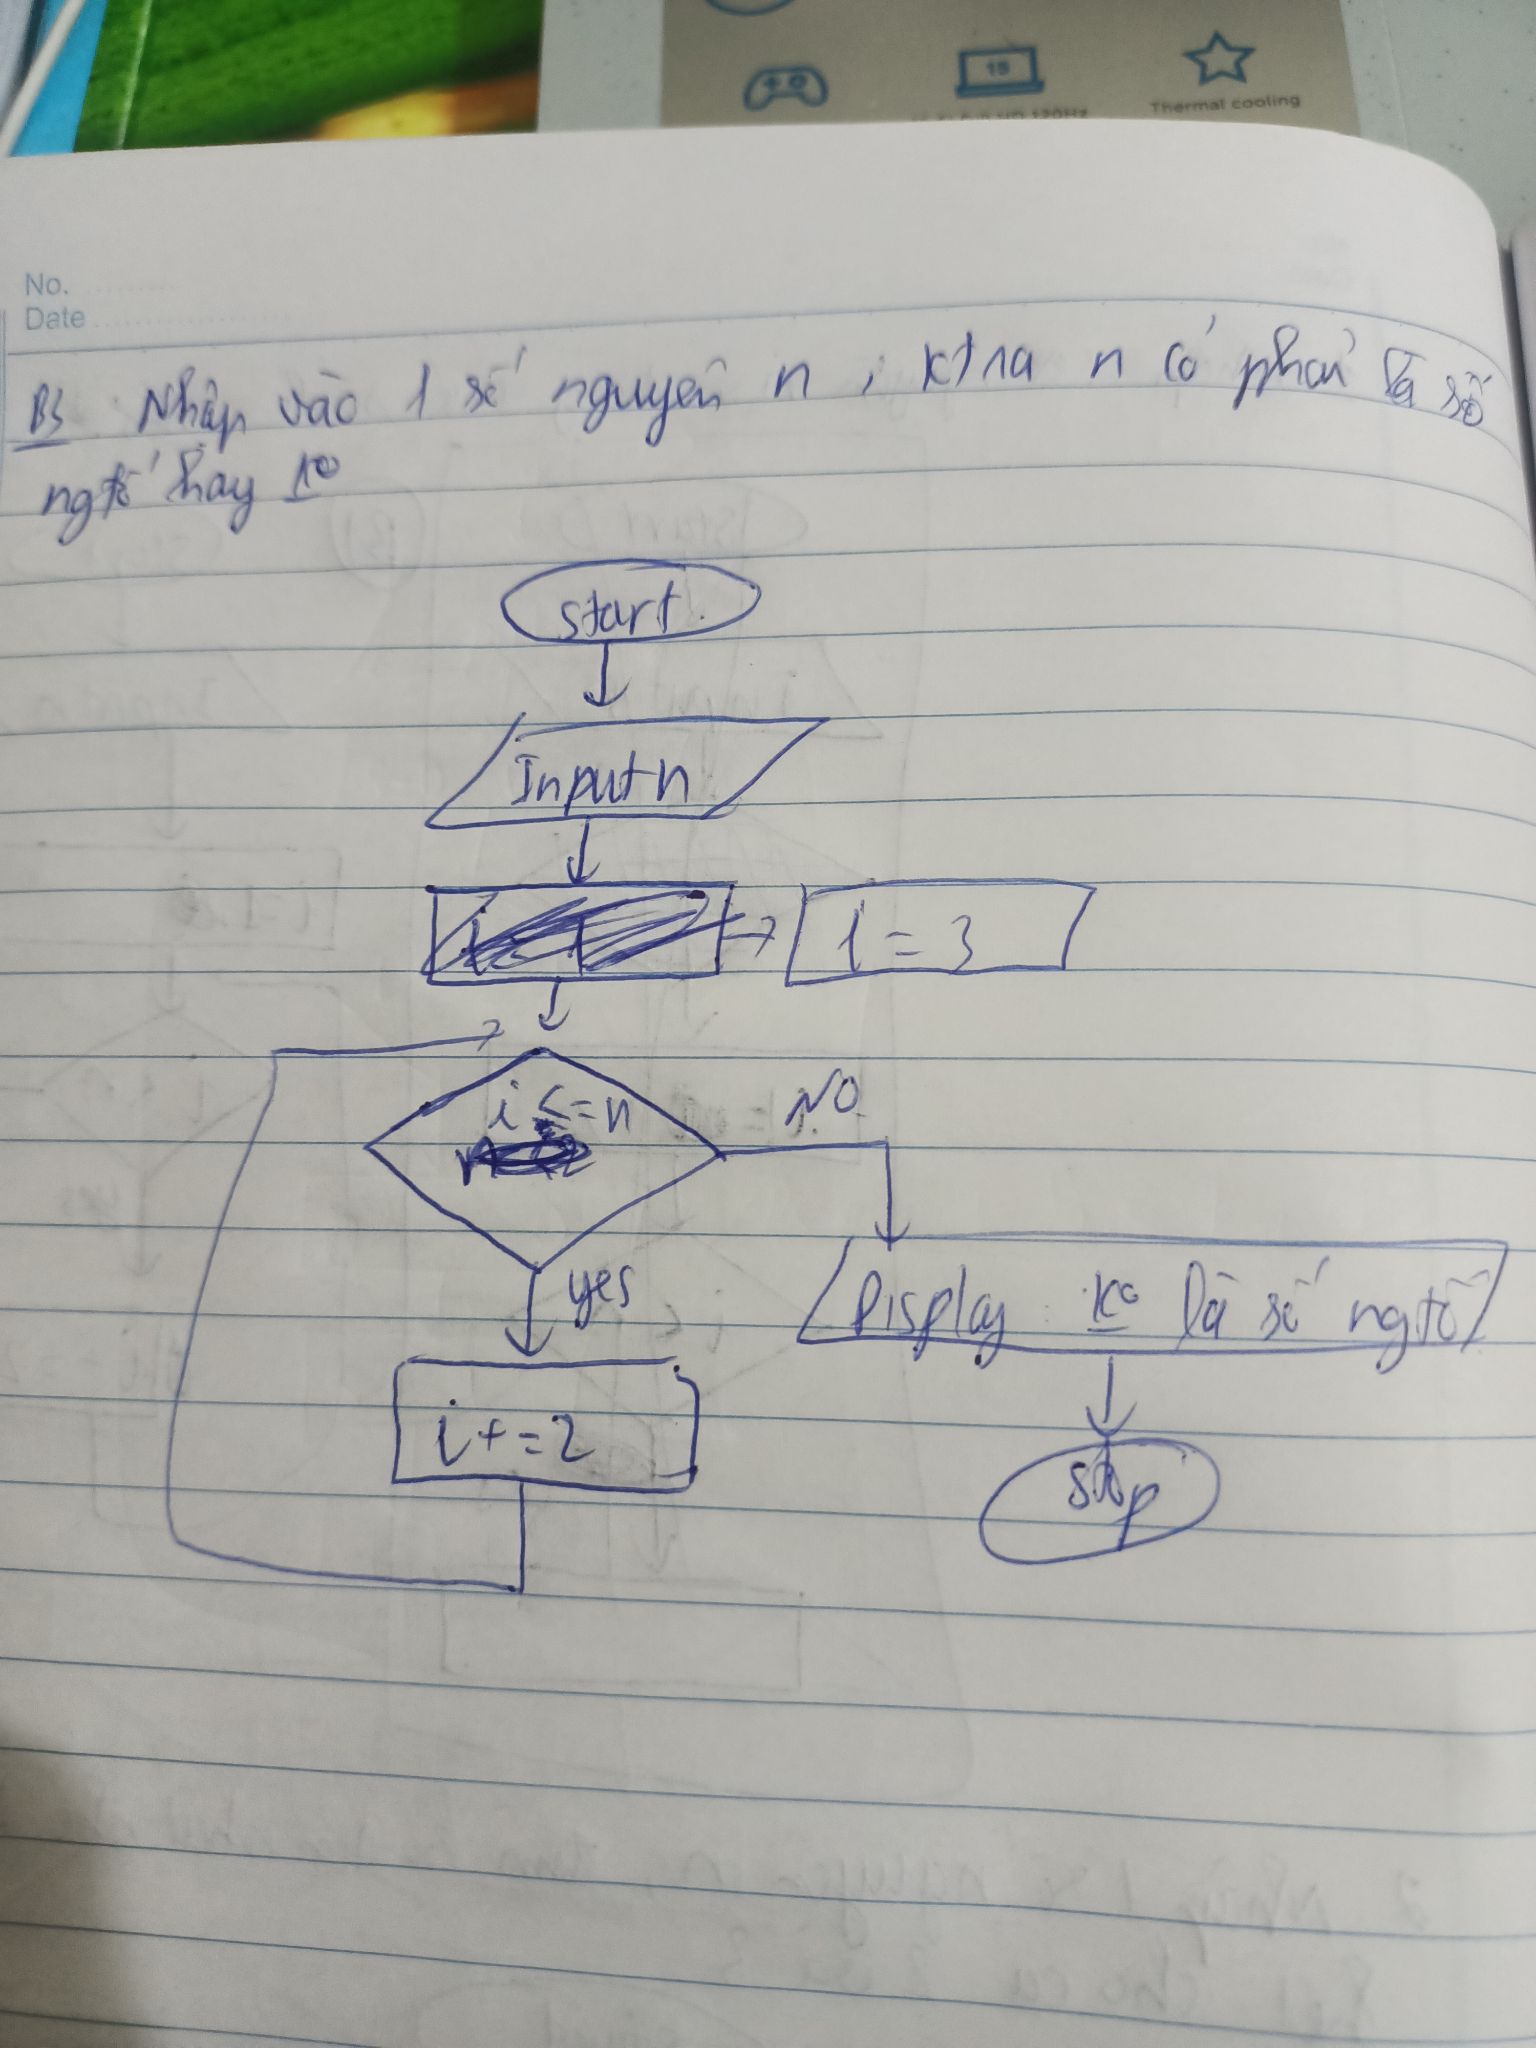 15
15.6" FHD 120Hz
Thermal cooling
No.
Date
B3 Nhập vào 1 số nguyên n, ktra n có phải là số
ngtố hay ko
start
Input n
i = 3
i <= n
NO
yes
Display : ko là số ngtố
i += 2
stop